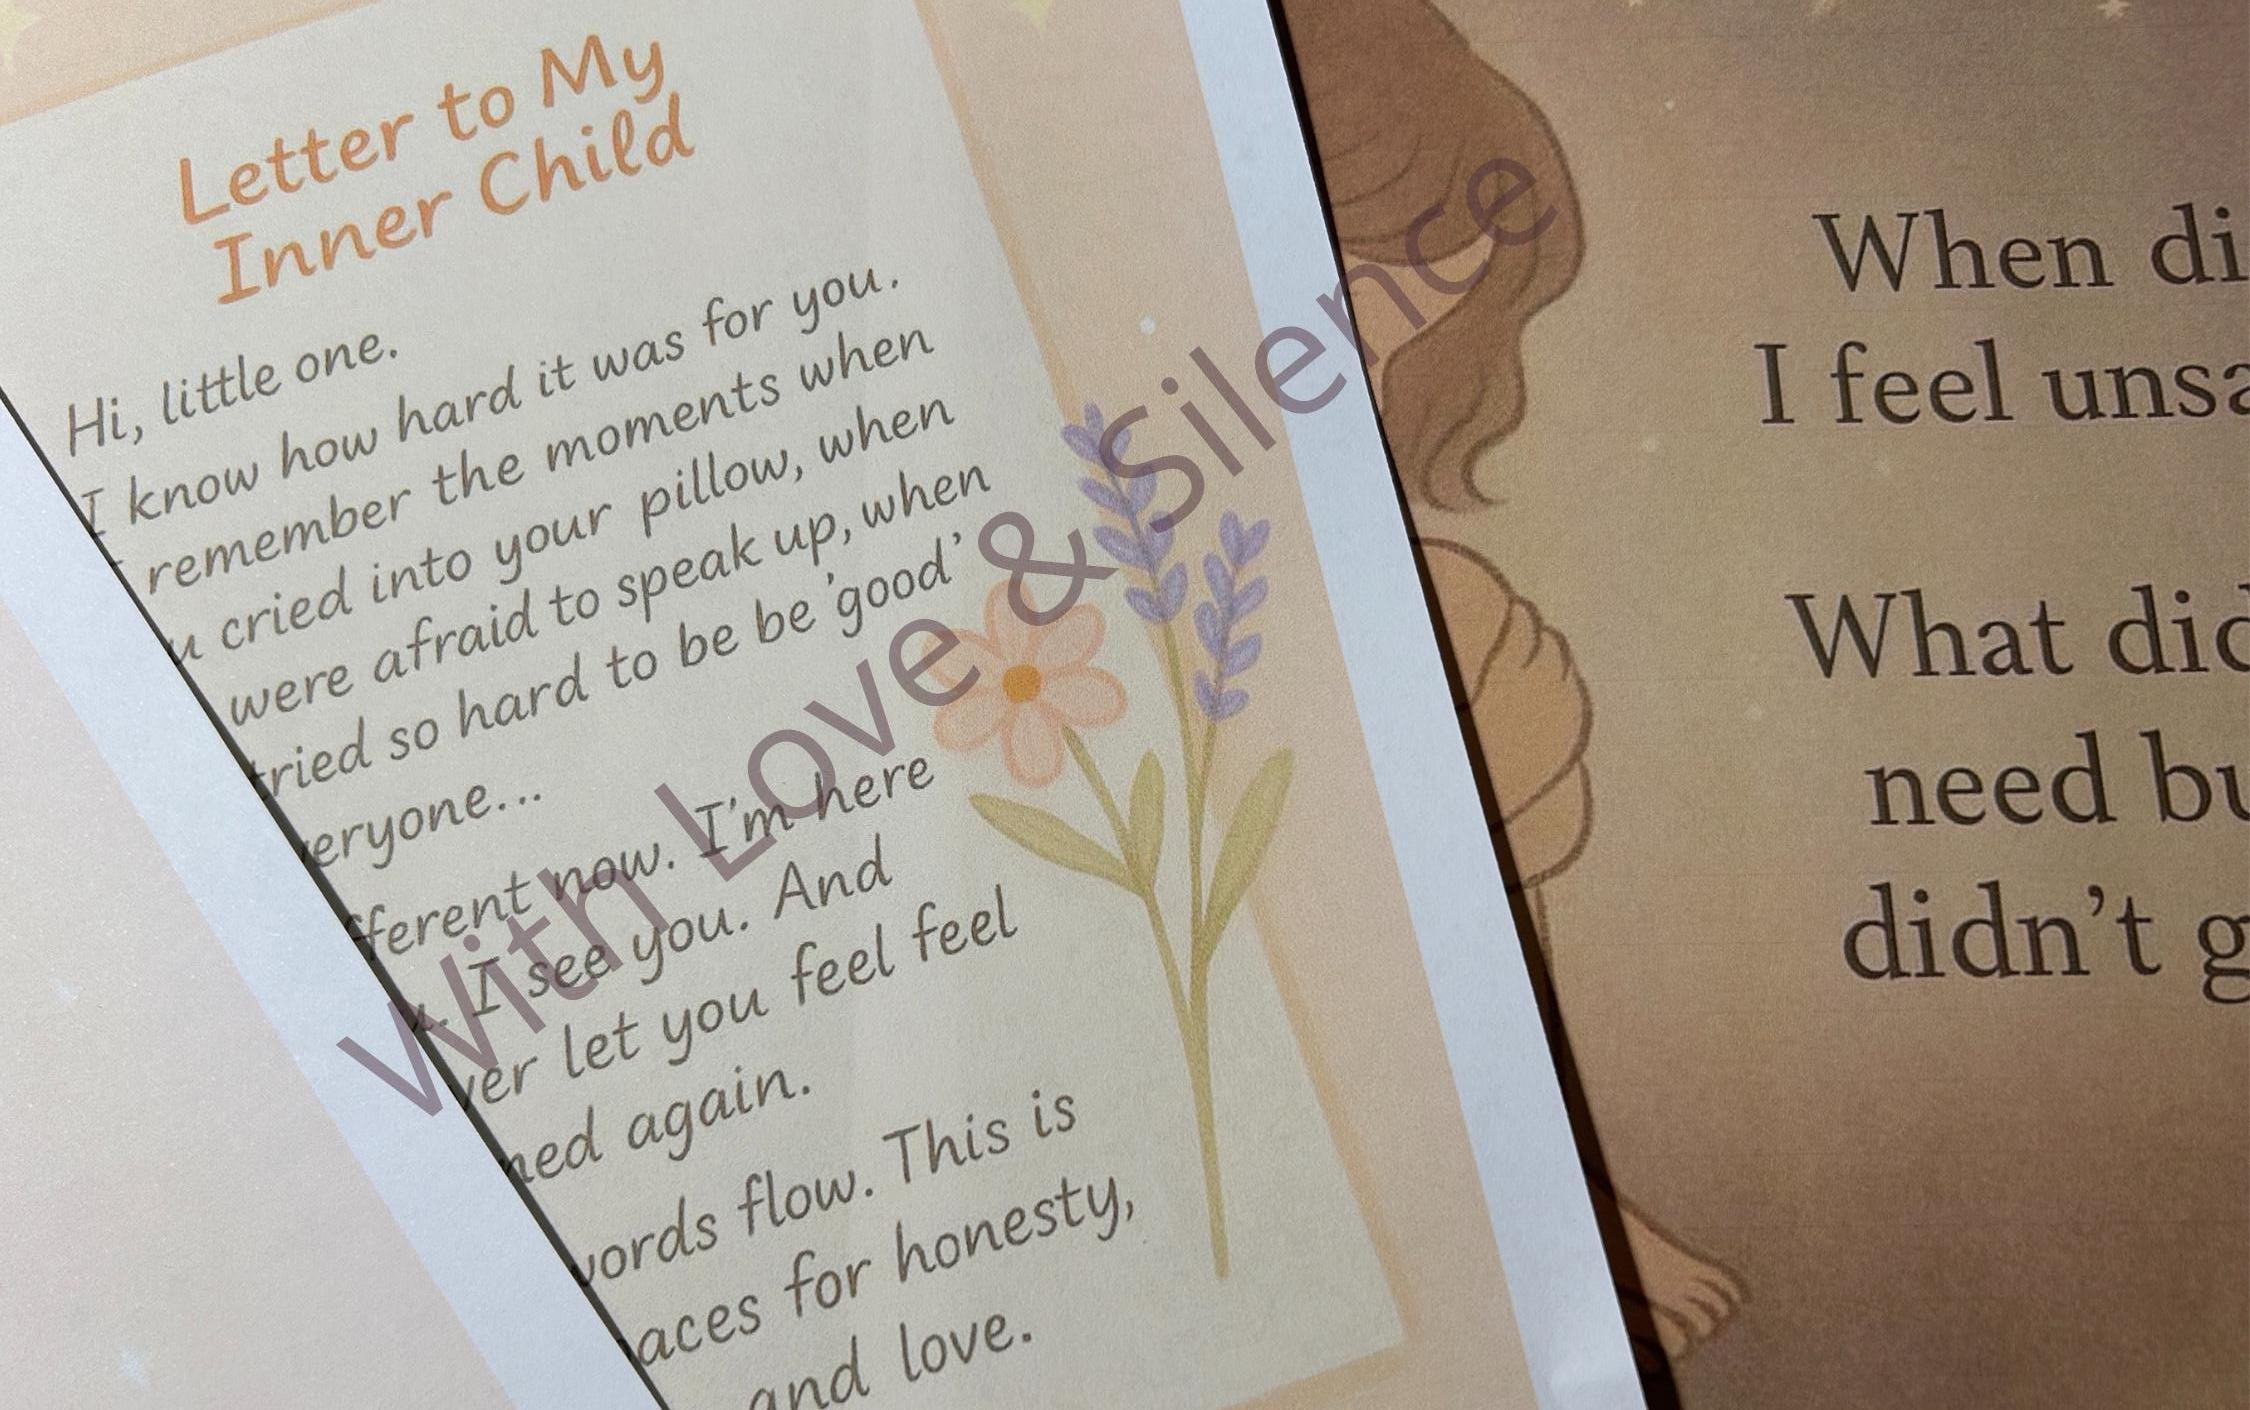 Letter to My
Inner Child
Hi, little one.
I know how hard it was for you.
remember the moments when
cried into your pillow, when
were afraid to speak up, when
tried so hard to be be 'good'
eryone...
fferent now. I'm here
I see you. And
ver let you feel feel
ned again.
words flow. This is
aces for honesty,
and love.
When di
I feel unsa
What did
need bu
didn't g
With Love & Silence